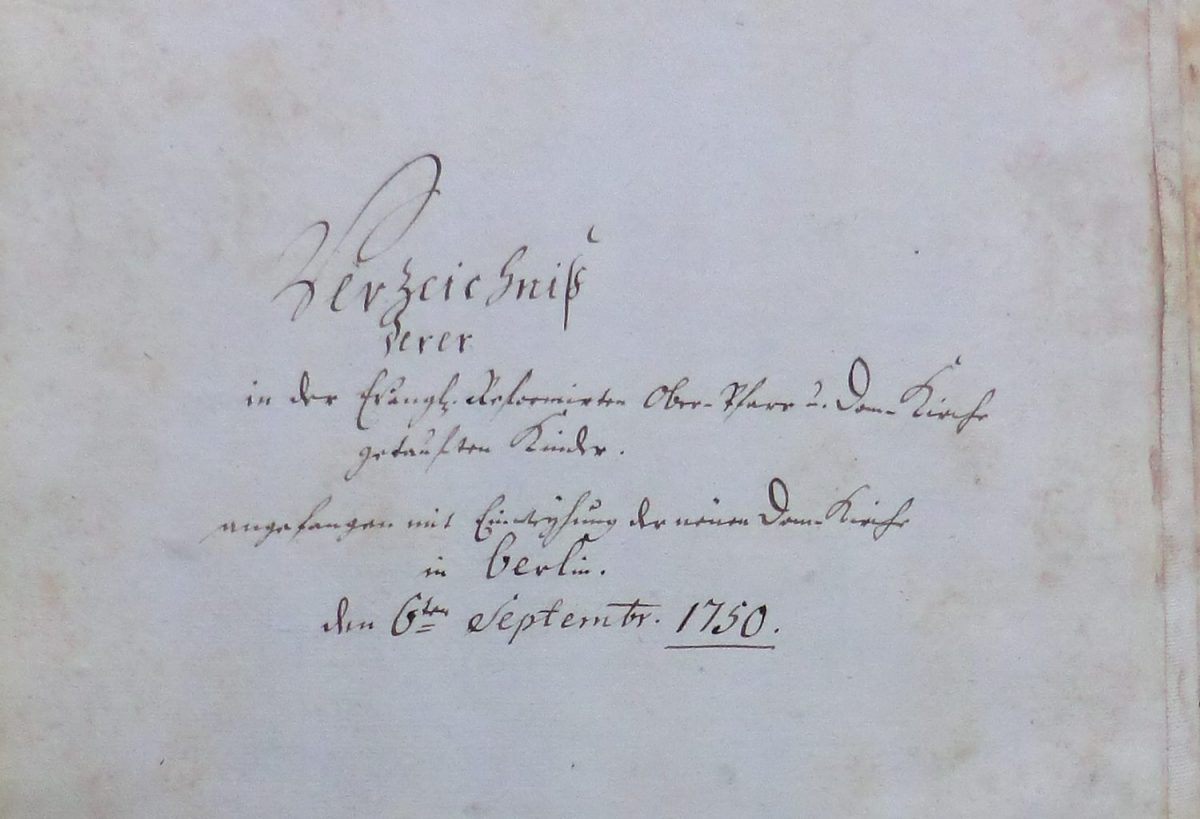 Verzeichniß
derer
in der Evangl. Reformirten Ober-Pfarr u. Dom-Kirche
getauften Kinder.
angefangen mit Einweyhung der neuen Dom-Kirche
in Berlin.
den 6ten Septembr. 1750.